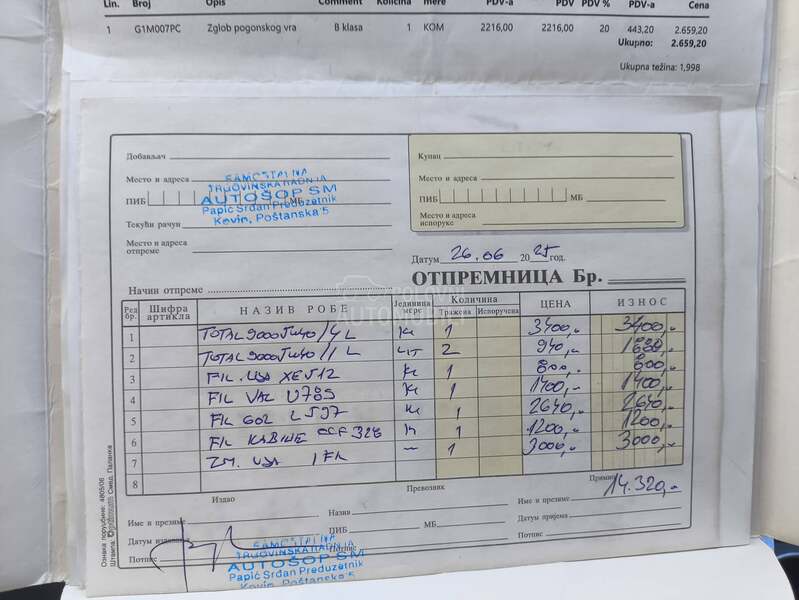 Lin. Broj Opis Comment Količina mere PDV-a PDV PDV % PDV-a Cena
1 G1M007PC Zglob pogonskog vra B klasa 1 KOM 2216,00 2216,00 20 443,20 2.659,20
Ukupno: 2.659,20
Ukupna težina: 1,998
Добављач
Купац
Место и адреса
Место и адреса
ПИБ МБ
ПИБ МБ
SAMOSTALNA
TRGOVINSKA RADNJA
AUTOŠOP SM
Papić Srđan Preduzetnik
Kevin, Poštanska 5
Текући рачун
Место и адреса испоруке
Место и адреса отпреме
Датум 26.06 2025 год.
Начин отпреме
ОТПРЕМНИЦА Бр.
Ред бр. Шифра артикла НАЗИВ РОБЕ Јединица мере Количина Тражена Испоручена ЦЕНА ИЗНОС
1 TOTAL 9000 5W40 / 4L 1 3400,- 3400,-
2 TOTAL 9000 5W40 / 1L 2 940,-
3 FIL. ULJA XE512 1 800,- 800,-
4 FIL VAZ U785 1 1400,- 1400,-
5 FIL GOR L597 1 2640,- 2640,-
6 FIL KABINE CCF328 1 1200,- 1200,-
7 ZM. ULJA I FIL 1 3000,- 3000,-
8
14.320,-
Издао
Превозник
Примио
Име и презиме
Назив
Име и презиме
Датум издавања
ПИБ МБ
Датум пријема
Потпис
Потпис
Потпис
SAMOSTALNA
TRGOVINSKA RADNJA
AUTOŠOP SM
Papić Srđan Preduzetnik
Kevin, Poštanska 5
Ознака поруџбине: 4805/06
Смед. Паланка
POLOVNI
AUTOMOBILI